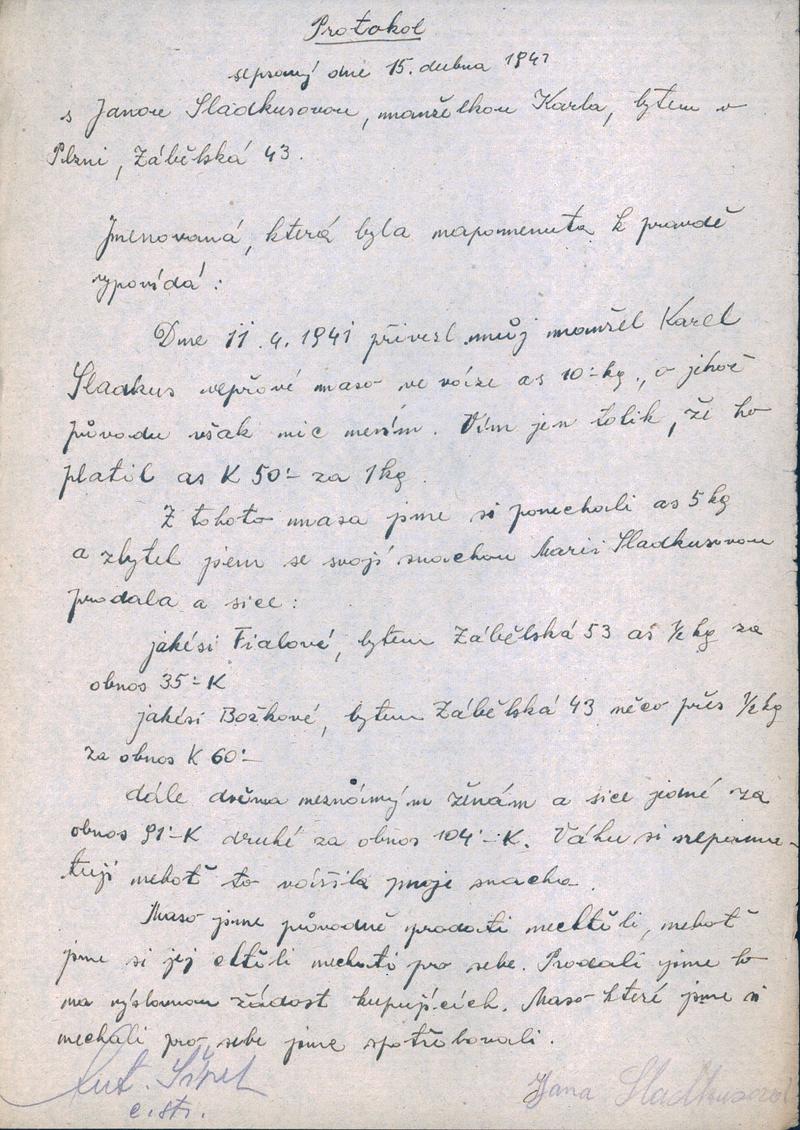 Protokol
sepsaný dne 15. dubna 1941
s Janou Sladkusovou, manželkou Karla, bytem v
Plzni, Zábělská 43.
Jmenovaná, která byla napomenuta k pravdě
vypovídá:
Dne 11.4.1941 přivezl můj manžel Karel
Sladkus vepřové maso ve váze as 10·- kg., o jehož
původu však nic nevím. Vím jen tolik, že ho
platil as K 50·- za 1 kg.
Z tohoto masa jsme si ponechali as 5 kg
a zbytek jsem se svojí snachou Marií Sladkusovou
prodala a sice:
jakési Fialové, bytem Zábělská 53 as ½ kg za
obnos 35·- K
jakési Boškové, bytem Zábělská 43 něco přes ½ kg
za obnos K 60·-
dále dvěma neznámým ženám a sice jedné za
obnos 91·- K druhé za obnos 104·- K. Váhu si nepama-
tuji neboť to vážila moje snacha.
Maso jsme původně prodati nechtěli, neboť
jsme si jej chtěli nechati pro sebe. Prodali jsme to
na výslovnou žádost kupujících. Maso které jsme si
nechali pro sebe jsme spotřebovali.
Ant.
Jana Sladkusová